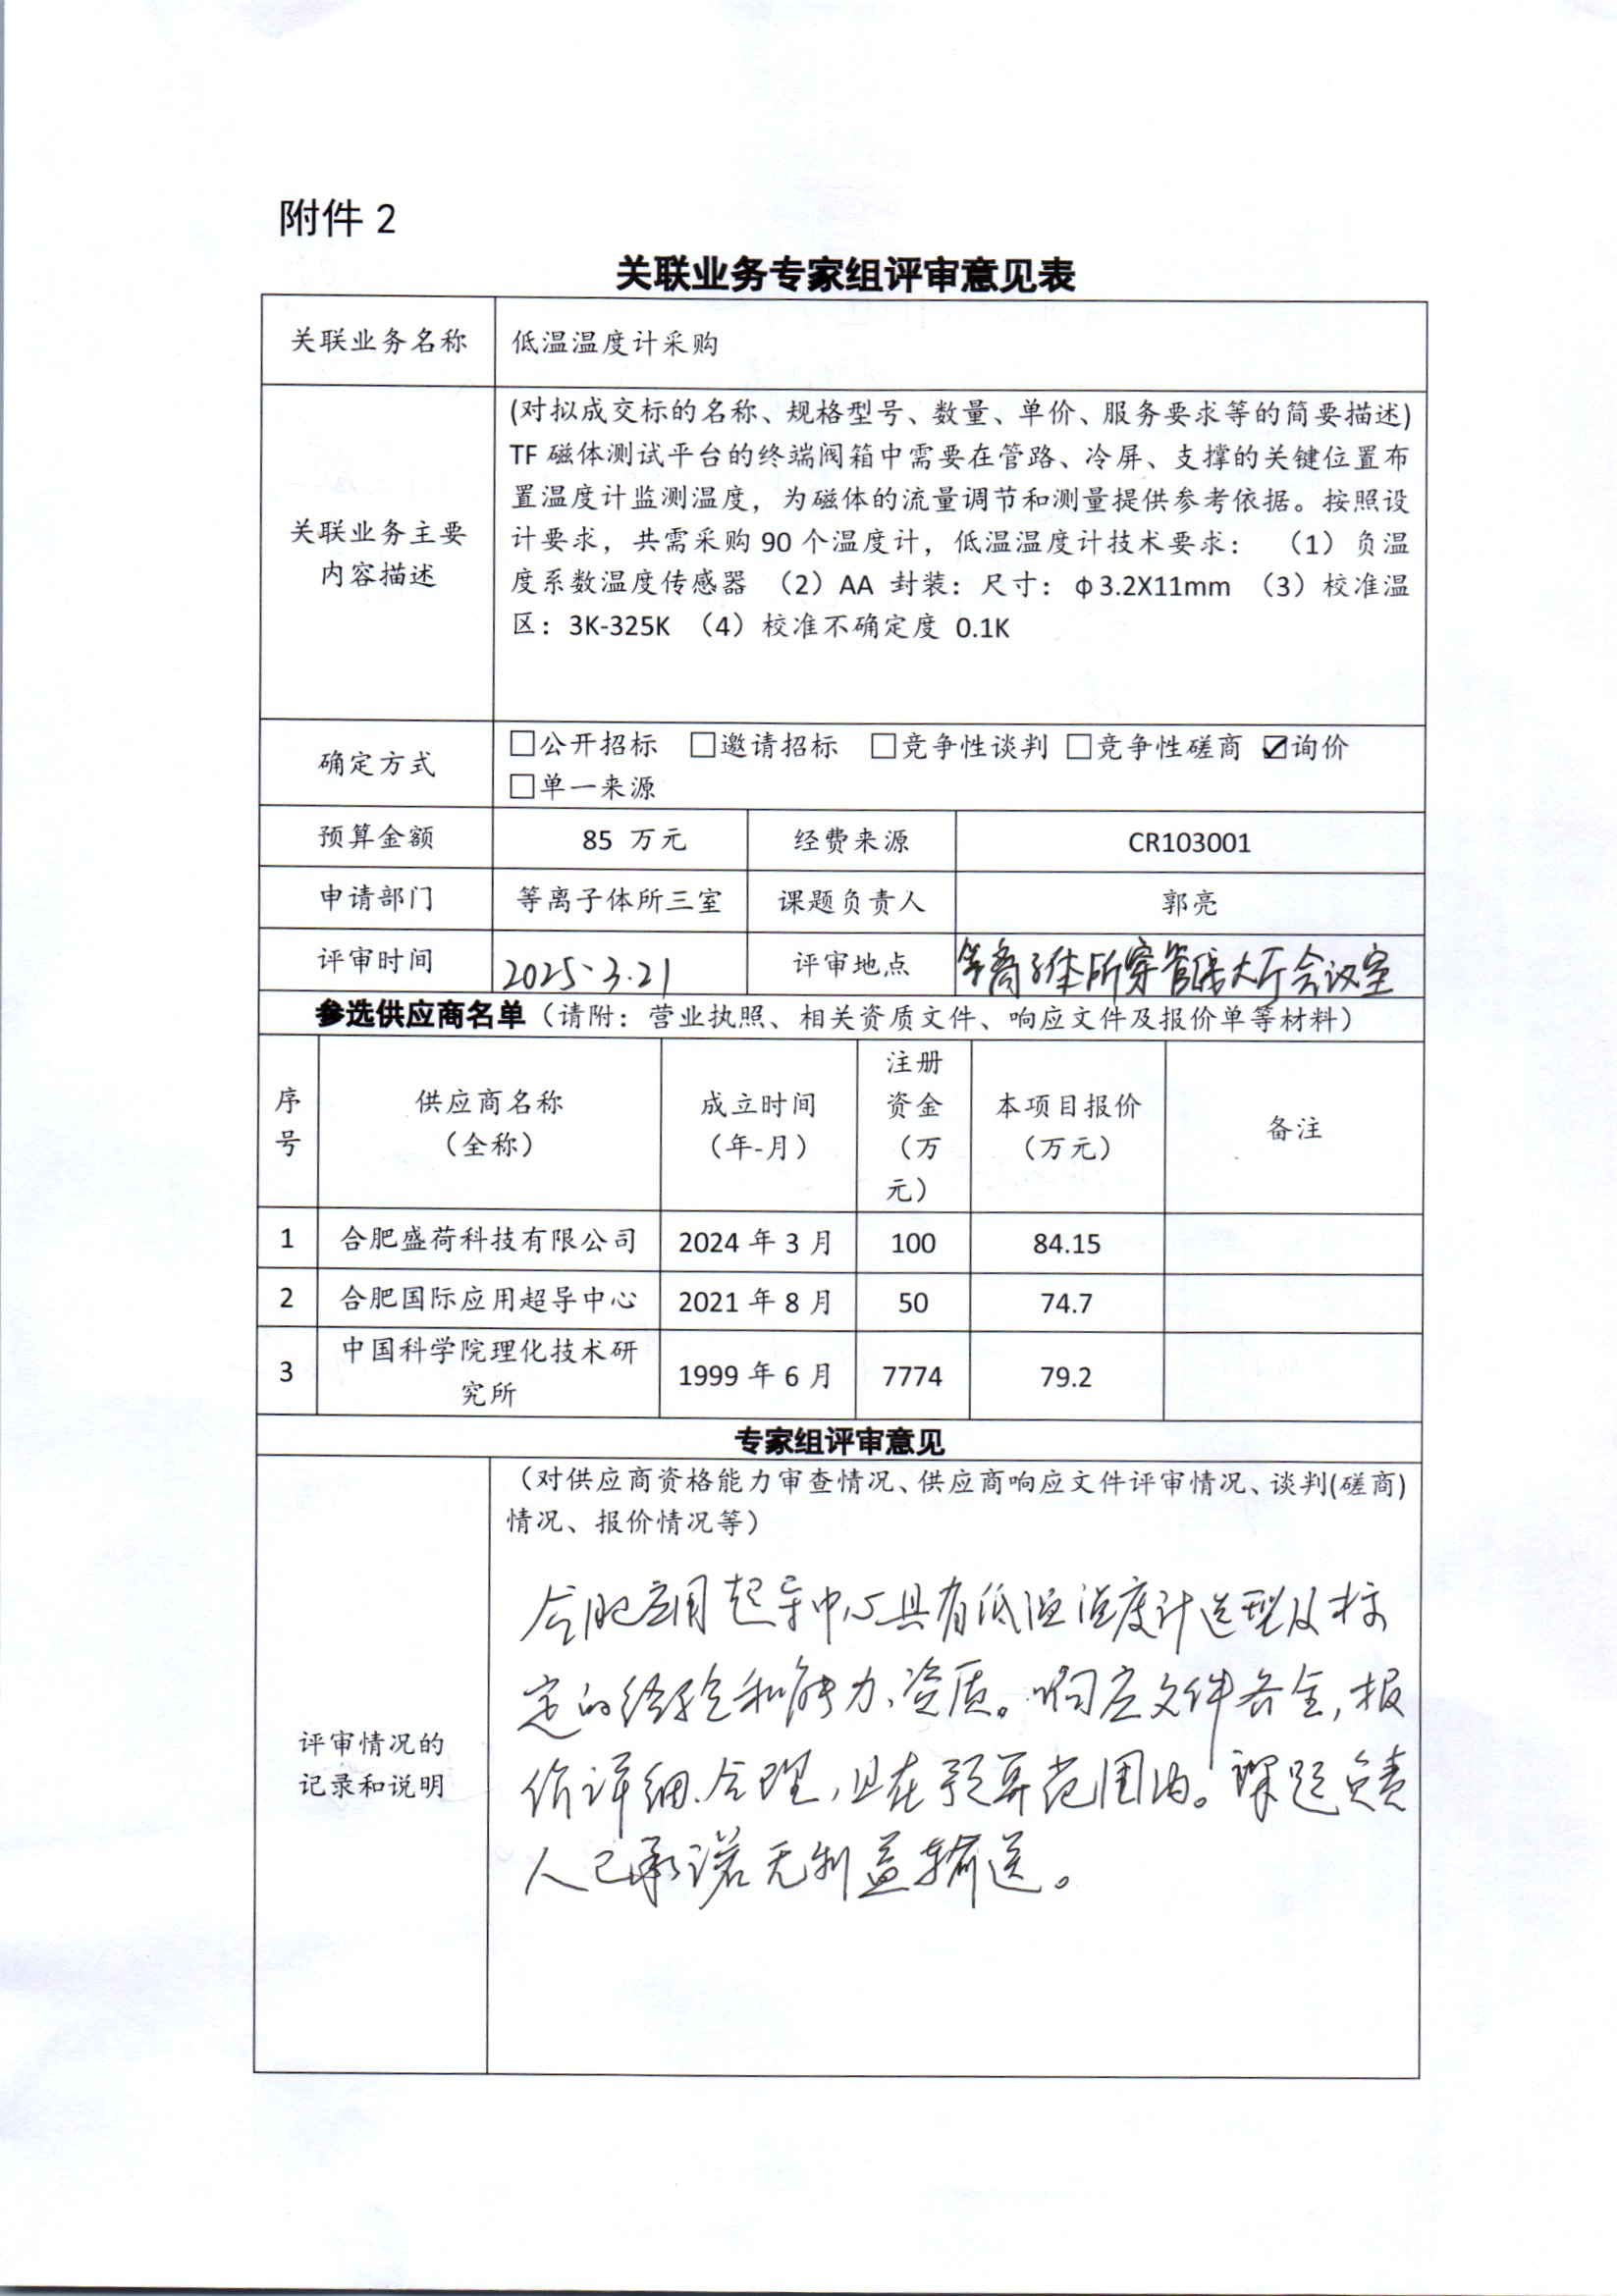 附件 2
关联业务专家组评审意见表
关联业务名称 低温温度计采购
关联业务主要
内容描述
(对拟成交标的名称、规格型号、数量、单价、服务要求等的简要描述)
TF 磁体测试平台的终端阀箱中需要在管路、冷屏、支撑的关键位置布
置温度计监测温度，为磁体的流量调节和测量提供参考依据。按照设
计要求，共需采购 90 个温度计，低温温度计技术要求： （1）负温
度系数温度传感器 （2）AA 封装：尺寸：φ3.2X11mm （3）校准温
区：3K-325K （4）校准不确定度 0.1K
确定方式
□公开招标 □邀请招标 □竞争性谈判 □竞争性磋商 ☑询价
□单一来源
预算金额 85 万元 经费来源 CR103001
申请部门 等离子体所三室 课题负责人 郭亮
评审时间 2025.3.21 评审地点 等离子体所穿管保大厅会议室
参选供应商名单（请附：营业执照、相关资质文件、响应文件及报价单等材料）
序号 供应商名称（全称） 成立时间（年-月） 注册资金（万元） 本项目报价（万元） 备注
1 合肥盛荷科技有限公司 2024 年 3 月 100 84.15
2 合肥国际应用超导中心 2021 年 8 月 50 74.7
3 中国科学院理化技术研究所 1999 年 6 月 7774 79.2
专家组评审意见
评审情况的
记录和说明
（对供应商资格能力审查情况、供应商响应文件评审情况、谈判(磋商)
情况、报价情况等）
合肥应用超导中心具有低温温度计选型及标
定的经验和能力、资质。响应文件齐全，报
价详细、合理，且在预算范围内。课题负责
人已承诺无利益输送。